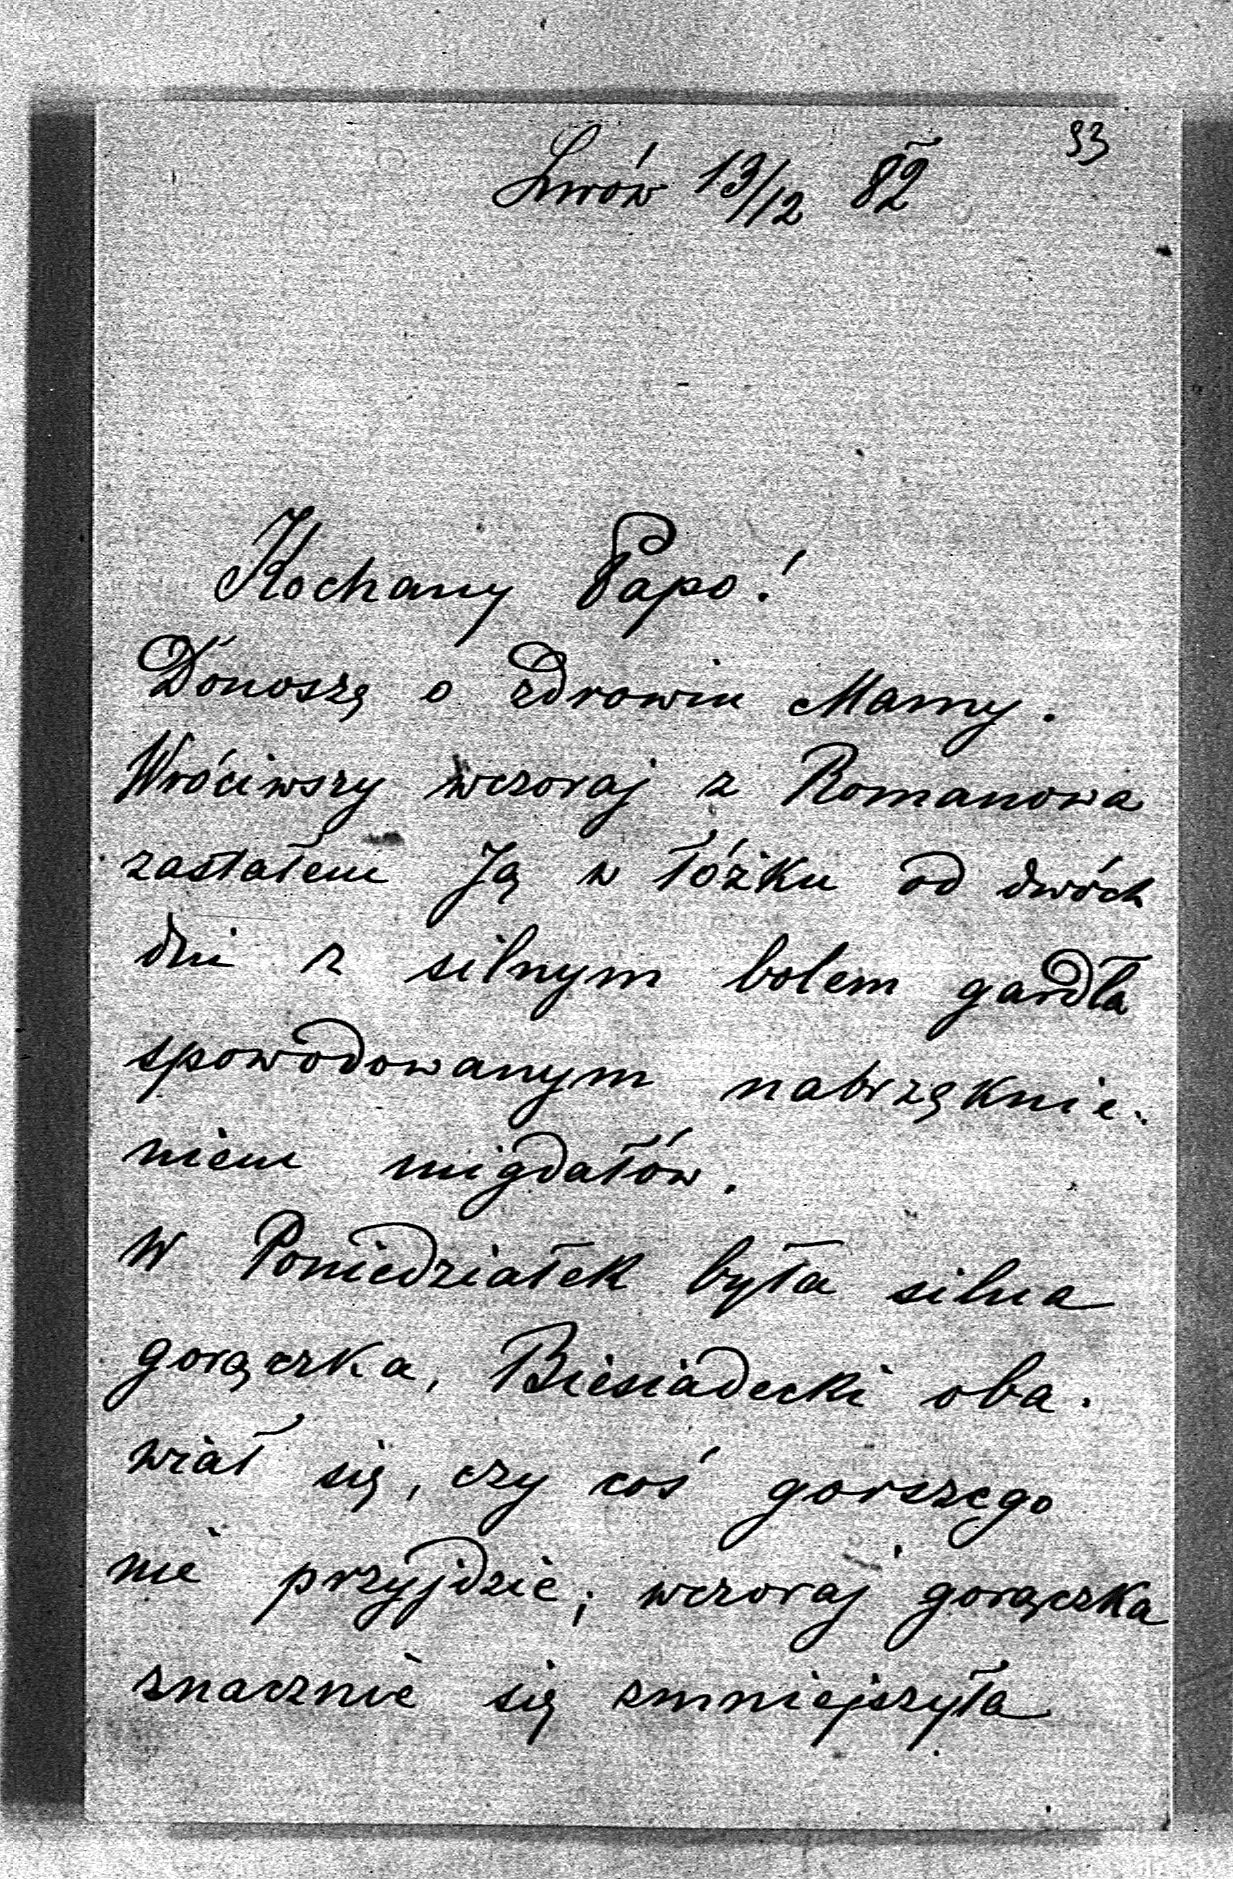 93
Lwów 13/12 82
Kochany Papo!
Donoszę o zdrowiu Mamy.
Wróciwszy wczoraj z Romanowa
zastałem Ją w łóżku od dwóch
dni z silnym bolem gardła
spowodowanym nabrzęknie-
niem migdałów.
W Poniedziałek była silna
gorączka, Biesiadecki oba-
wiał się, czy coś gorszego
nie przyjdzie; wczoraj gorączka
znacznie się zmniejszyła